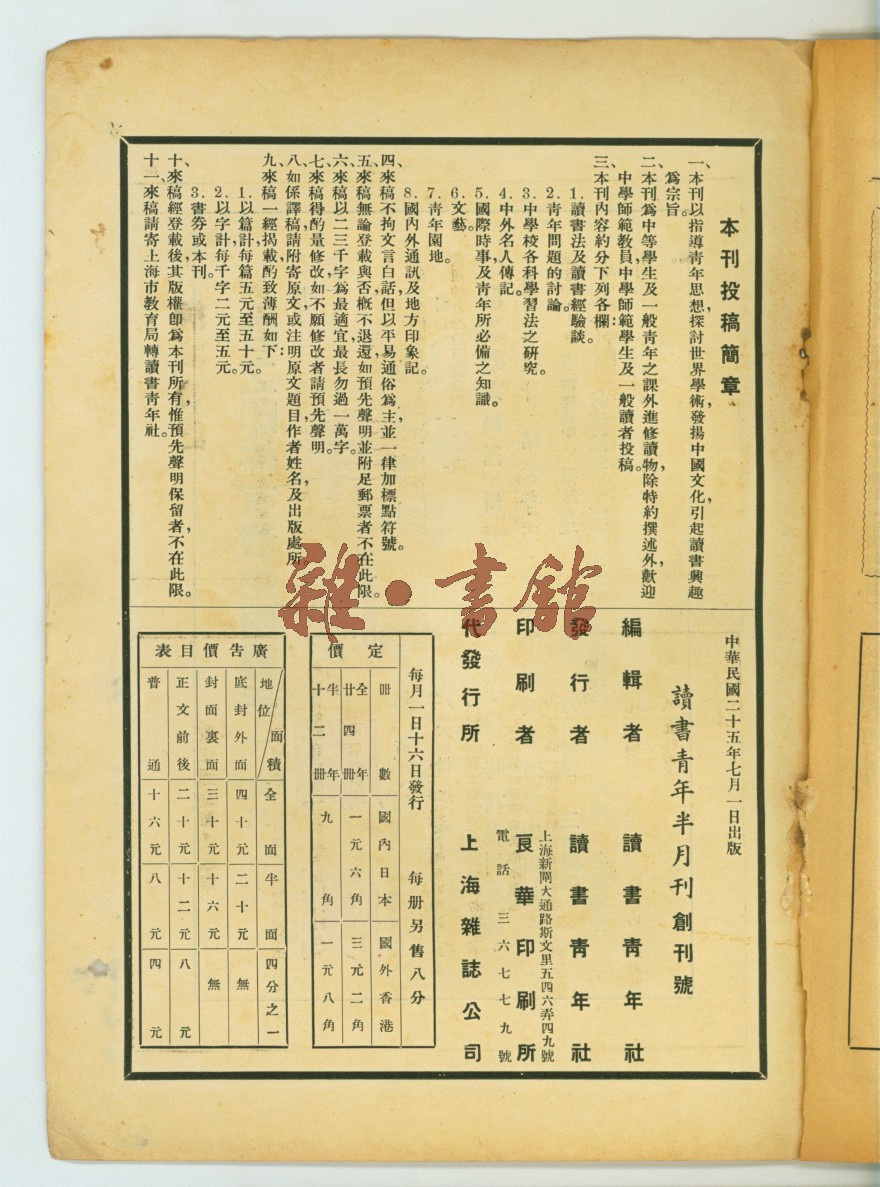 本刊投稿簡章
一、本刊以指導青年思想，探討世界學術，發揚中國文化，引起讀書興趣
爲宗旨。
二、本刊爲中等學生及一般青年之課外進修讀物，除特約撰述外，歡迎
中學師範教員，中學師範學生及一般讀者投稿。
三、本刊內容約分下列各欄：
1. 讀書法及讀書經驗談。
2. 青年問題的討論。
3. 中學校各科學習法之研究。
4. 中外名人傳記。
5. 國際時事及青年所必備之知識。
6. 文藝。
7. 青年園地。
8. 國內外通訊及地方印象記。
四、來稿不拘文言白話，但以平易通俗爲主，並一律加標點符號。
五、來稿無論登載與否概不退還，如預先聲明並附足郵票者不在此限。
六、來稿以二三千字爲最適宜，最長勿過一萬字。
七、來稿得酌量修改，如不願修改者請預先聲明。
八、如係譯稿請附寄原文，或注明原文題目，作者姓名，及出版處所。
九、來稿一經揭載酌致薄酬如下：
1. 以篇計，每篇五元至五十元。
2. 以字計，每千字二元至五元。
3. 書券或本刊。
十、來稿經登載後，其版權卽爲本刊所有，惟預先聲明保留者，不在此限。
十一、來稿請寄上海市教育局轉讀書青年社。
中華民國二十五年七月一日出版
讀書青年半月刊創刊號
編輯者　讀書青年社
發行者　讀書青年社
上海新閘大通路斯文里五四六弄四九號
印刷者　良華印刷所
電話　三六七七九號
代發行所　上海雜誌公司
每月一日十六日發行　每册另售八分
定價
冊數　國內日本　國外香港
全年廿四冊　一元六角　三元二角
半年十二冊　九角　一元八角
廣告價目表
地位　面積　全面　半面　四分之一
底封外面　四十元　二十元　無
封面裏面　三十元　十六元　無
正文前後　二十元　十二元　八元
普通　十六元　八元　四元
雜·書館